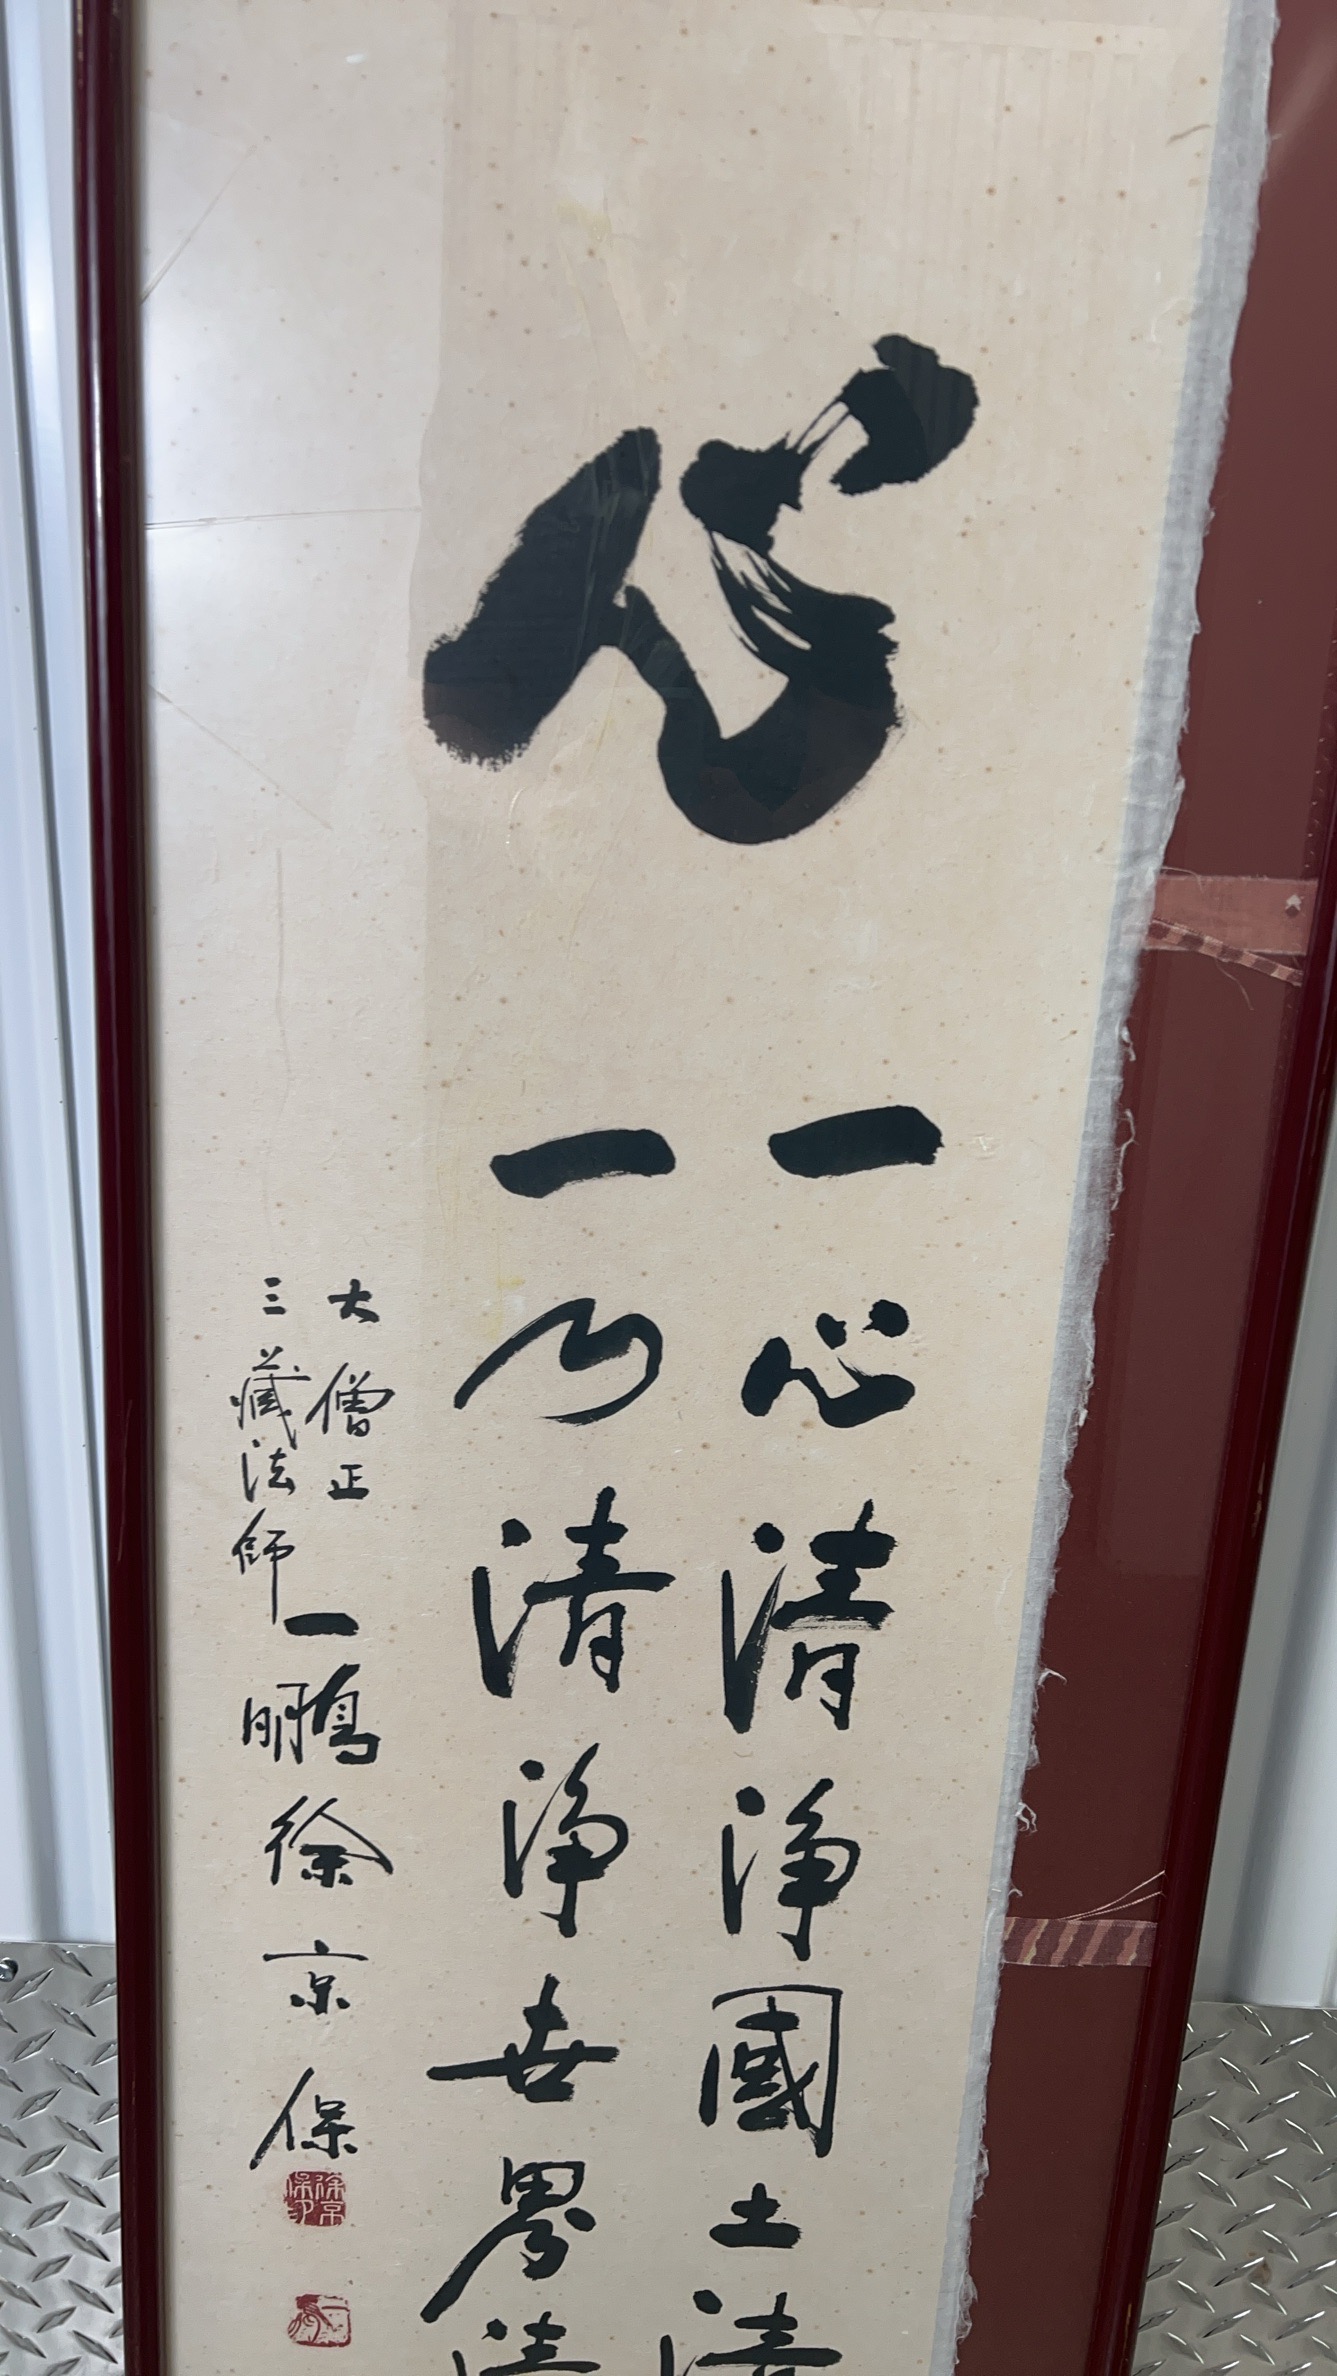 心
一心清淨國土清
一方清淨世界清
大僧正
三藏法師
一鵬徐京保
徐京保印